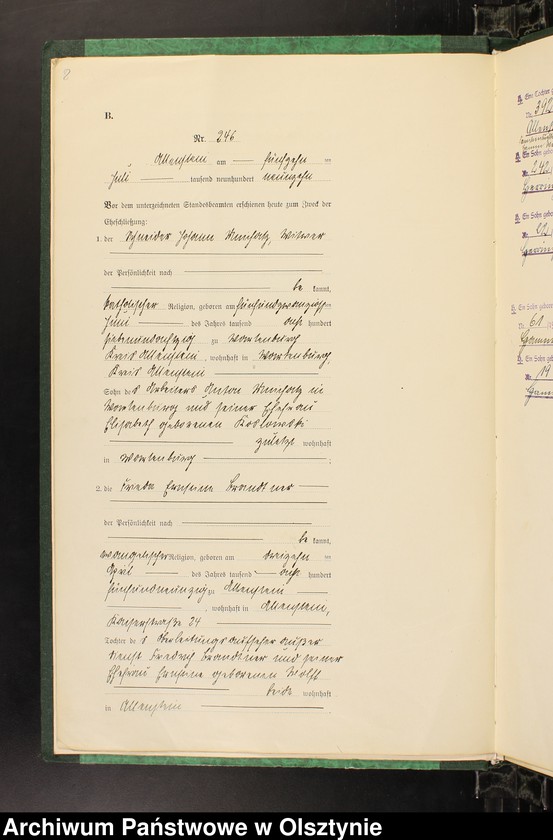 8
B.
Nr. 246
Allenstein am fünfzehn ten
Juli tausend neunhundert neunzehn
Vor dem unterzeichneten Standesbeamten erschienen heute zum Zweck der
Eheschließung:
1. der Schneider Johann, Witwer
der Persönlichkeit nach
be kannt,
katholischer Religion, geboren am fünfundzwanzigsten
Juni des Jahres tausend acht hundert
siebenundachtzig zu Wartenburg
Kreis Allenstein, wohnhaft in Wartenburg,
Kreis Allenstein
Sohn des Arbeiters Anton in
Wartenburg und seiner Ehefrau
Elisabeth geborenen Koslowski
zuletzt wohnhaft
in Wartenburg ;
2. die Frieda Ernstine Brandtner
der Persönlichkeit nach
be kannt,
evangelischer Religion, geboren am dreizehn ten
April des Jahres tausend acht hundert
fünfundneunzig zu Allenstein
, wohnhaft in Allenstein,
Kaiserstraße 24
Tochter des Oberleitungsaufseher außer
Dienst Friedrich Brandtner und seiner
Ehefrau Ernstine geborenen Wolff
beide wohnhaft
in Allenstein
Eine Tochter
Nr. 392
Allenst
Ein Sohn gebor
Nr. 242
Ein Sohn gebor
Ein Sohn geboren
Nr. 61
Ein Sohn geb
Nr. 19
Archiwum Państwowe w Olsztynie